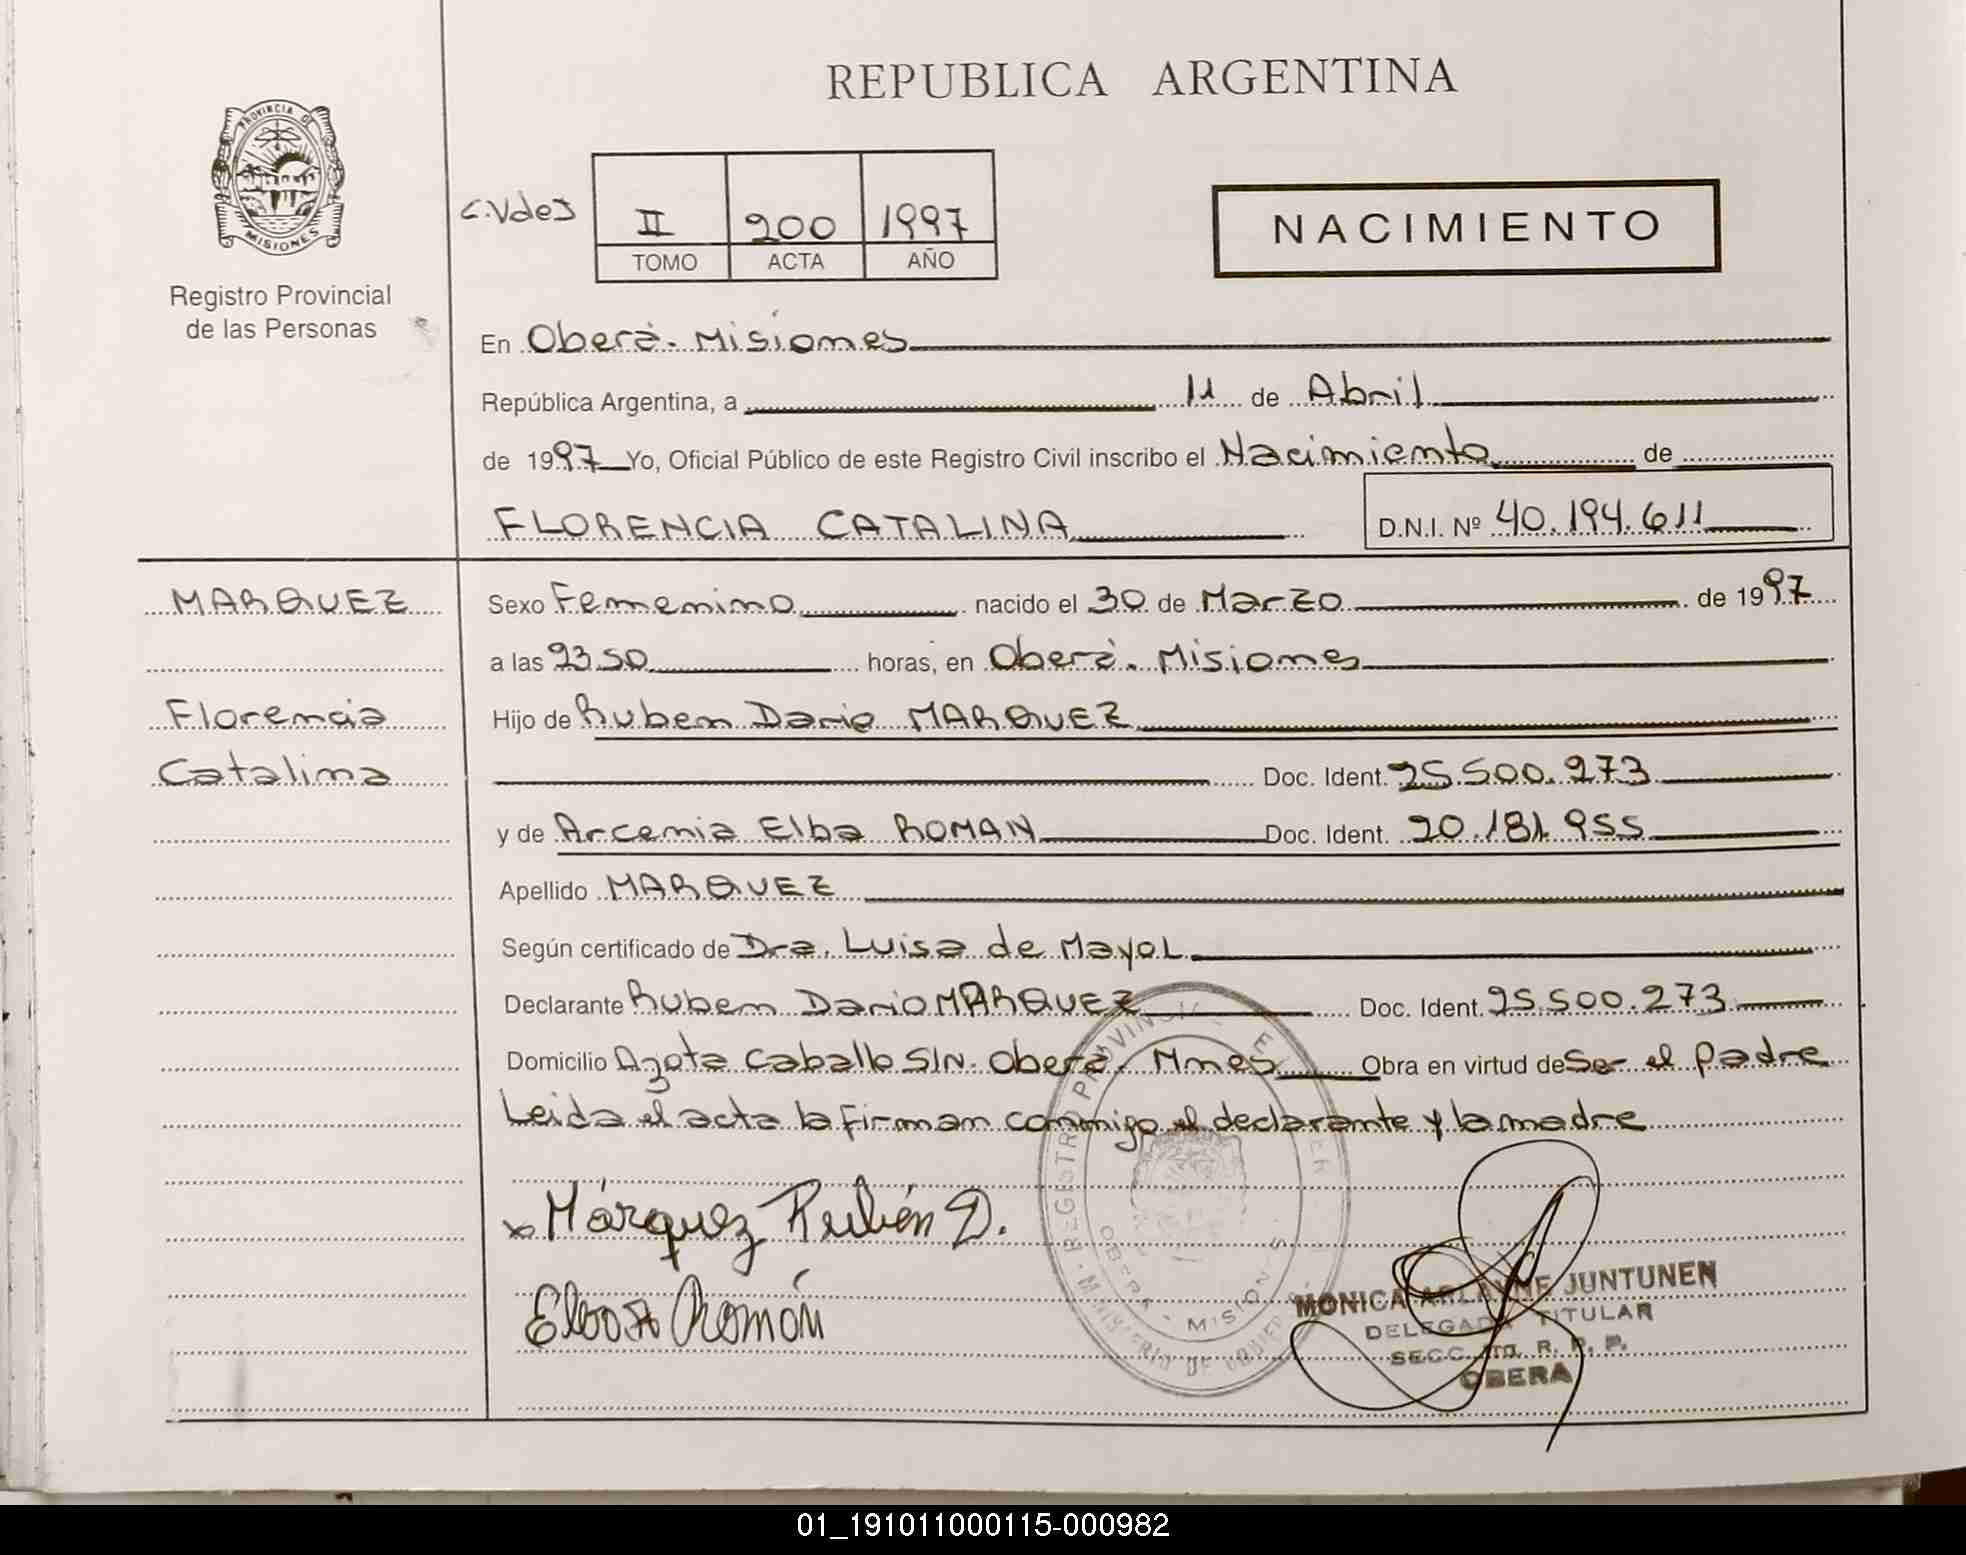 REPUBLICA ARGENTINA
PROVINCIA DE
MISIONES
Registro Provincial
de las Personas
II 200 1997
TOMO ACTA AÑO
NACIMIENTO
En Oberá. Misiones
República Argentina, a 11 de Abril
de 1997 Yo, Oficial Público de este Registro Civil inscribo el Nacimiento de
FLORENCIA CATALINA D.N.I. Nº 40.194.611
MARQUEZ
Florencia
Catalina
Sexo Femenino nacido el 30 de Marzo de 1997
a las 23 50 horas, en Oberá. Misiones
Hijo de Ruben Dario MARQUEZ
Doc. Ident. 25.500.273
y de Arcenia Elba ROMAN Doc. Ident. 20.181.955
Apellido MARQUEZ
Según certificado de Dra. Luisa de Mayol
Declarante Ruben Dario MARQUEZ Doc. Ident. 25.500.273
Domicilio Azota Caballo S/N. Oberá. Mnes Obra en virtud de Ser el padre
Leida el acta la firman conmigo el declarante y la madre
x Márquez Rubén D.
Román
REGISTRO PROVINCIAL
OBERA - MISIONES
MINISTERIO DE
MONICA JUNTUNEN
DELEGADA TITULAR
SECC. R. P. P.
OBERA
01_191011000115-000982